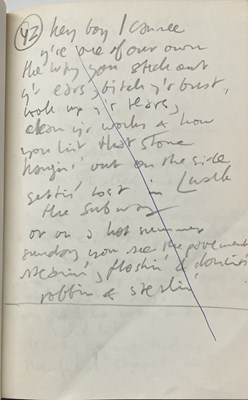 42 hey boy I can see
y're one of our own
the way you stick out
y'r ears, bitch y'r bust,
y'r tears,
clean y'r works & how
you hit that stone
hangin' out on the side
gettin' lost in
the subway
or on a hot summer
sunday you see the pavement
steamin', flashin' & dancin'
robbin & stealin'